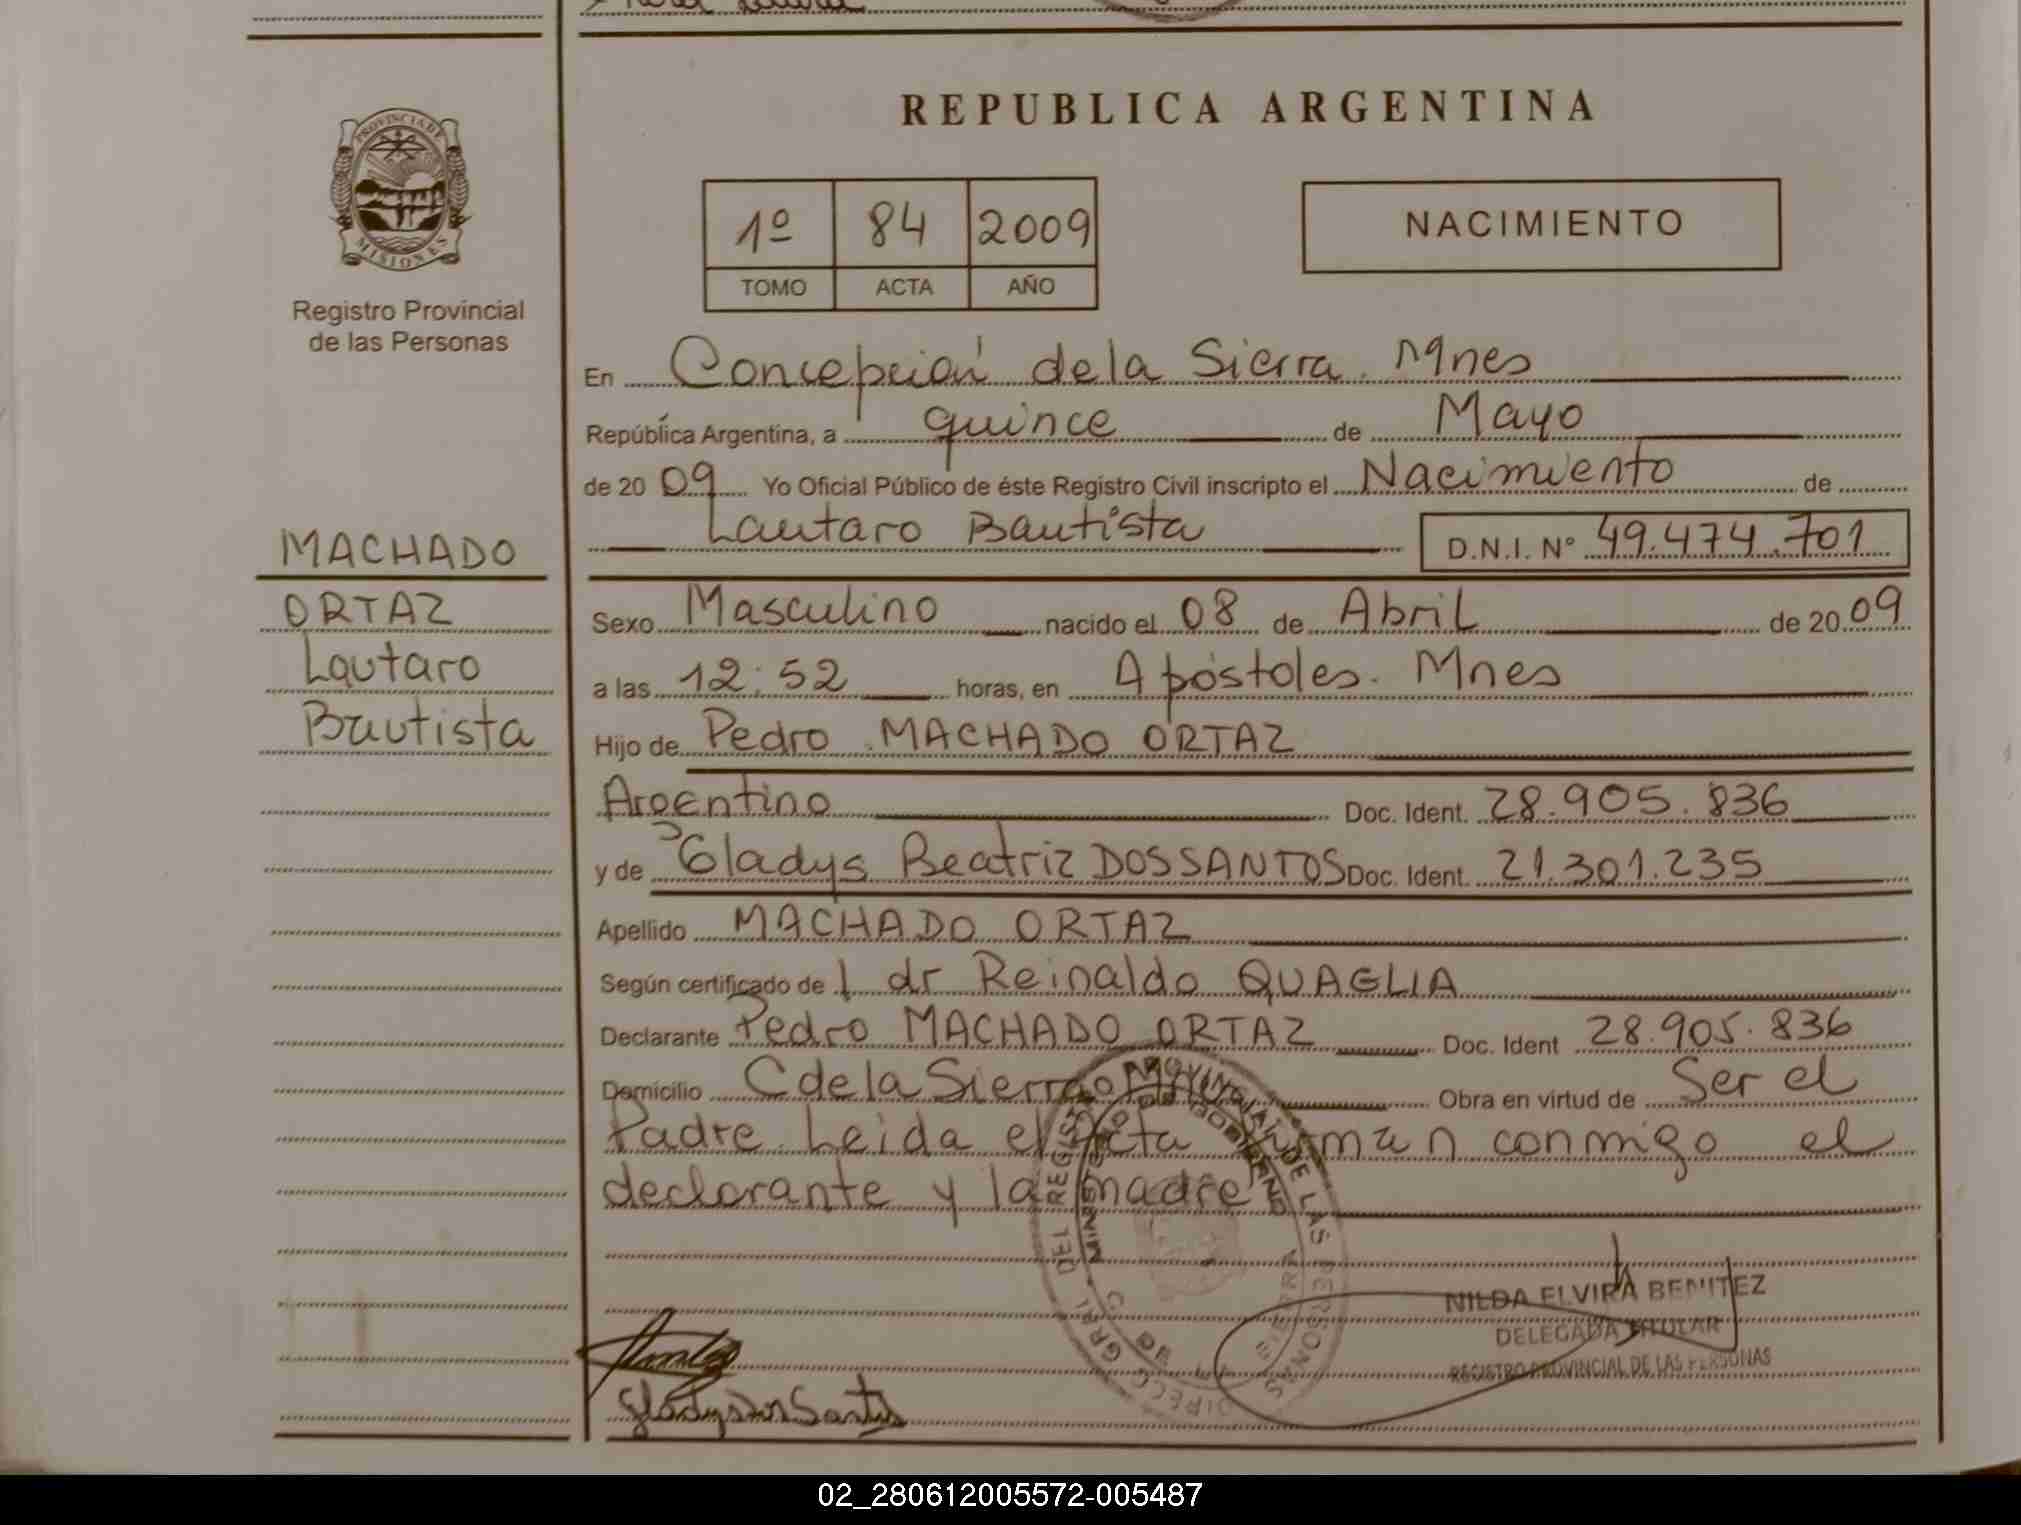 REPUBLICA ARGENTINA
PROVINCIA DE
MISIONES
Registro Provincial
de las Personas
1º 84 2009
TOMO ACTA AÑO
NACIMIENTO
En Concepción de la Sierra. Mnes
República Argentina, a quince de Mayo
de 20 09 Yo Oficial Público de éste Registro Civil inscripto el Nacimiento de
Lautaro Bautista D.N.I. Nº 49.474.701
MACHADO
ORTAZ
Lautaro
Bautista
Sexo Masculino nacido el 08 de Abril de 20 09
a las 12:52 horas, en Apóstoles. Mnes
Hijo de Pedro MACHADO ORTAZ
Argentino Doc. Ident. 28.905.836
y de Gladys Beatriz DOSSANTOS Doc. Ident. 21.301.235
Apellido MACHADO ORTAZ
Según certificado de l dr Reinaldo QUAGLIA
Declarante Pedro MACHADO ORTAZ Doc. Ident 28.905.836
Domicilio C de la Sierra Obra en virtud de Ser el
Padre. Leida el Acta firman conmigo el
declarante y la madre
DIRECC. GRAL. DEL REGISTRO PROVINCIAL DE LAS PERSONAS
MINISTERIO DE GOBIERNO
C. DE LA SIERRA
NILDA ELVIRA BENITEZ
DELEGADA TITULAR
REGISTRO PROVINCIAL DE LAS PERSONAS
Gladys Dos Santos
02_280612005572-005487